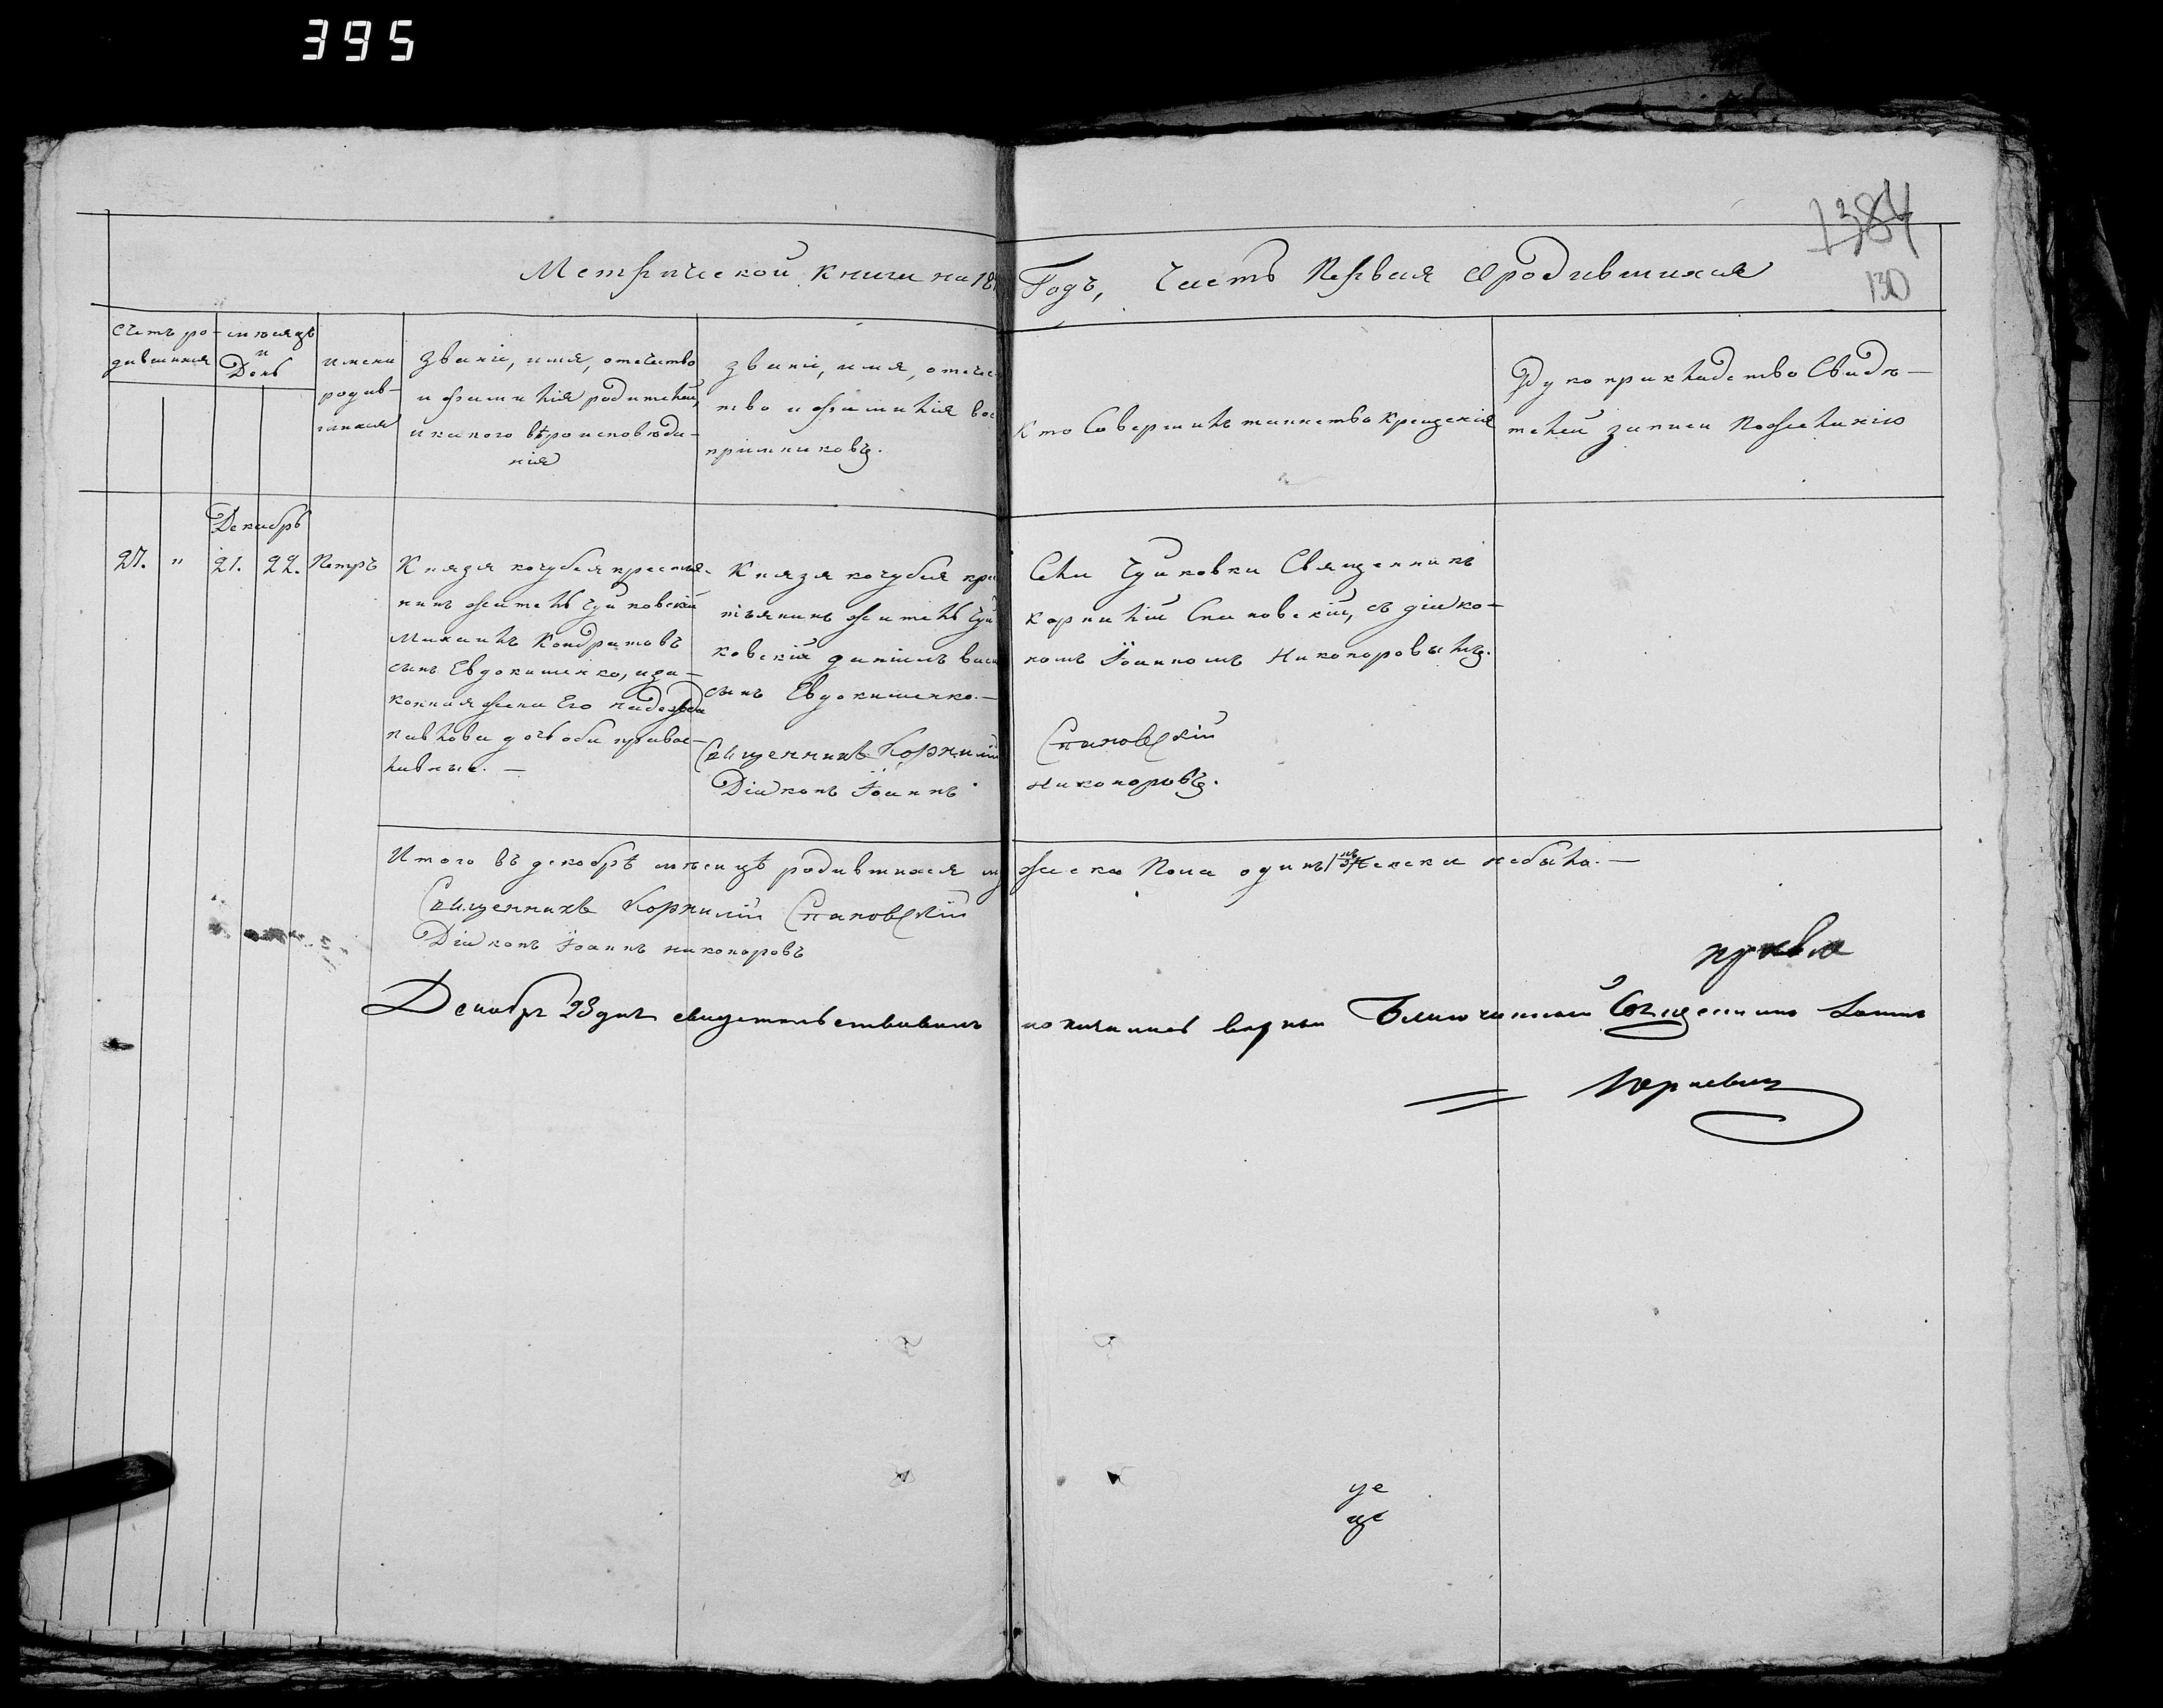 395
1384
130
Метрической книги на 18 Годъ, Часть Первая о родившихся
Счетъ ро-
дившихся
мѣсяцъ
и
День
имена
родив-
шихся
Званіе, имя, отечество
и фамилія родителей,
и какого вѣроисповѣда-
нія
Званіе, имя, отечес-
тво и фамилія вос
пріемниковъ.
Кто Совершилъ таинство Крещенія
Рукоприкладство Свидѣ-
телей записи по желанію
Декабрь
27. " 21. 22. Петръ
Князя кочубея крестья-
нинъ житель Чуйковскій
Михаилъ Кондратовъ
сынъ Евдокименко, и за-
конная жена Его Надежда
павлова дочь оба правос-
лавные. —
Князя кочубея кре
тьянинъ житель Чуй
ковскій даніилъ васи
сынъ Евдокименко. —
Села Чуйковки Священникъ
корнилій Спановскій, съ діако-
номъ Іоанномъ Никоноровымъ.
Священникъ Корнилій Спановскій
Діаконъ Іоаннъ Никоноровъ.
Итого въ декабрѣ мѣсяцѣ родившихся му жеска пола одинъ женска небыло. —
Священникъ Корнилій Спановскій
Діаконъ Іоаннъ никоноровъ
Декабря 23 дня свидетельствовалъ Благочинный Священникъ